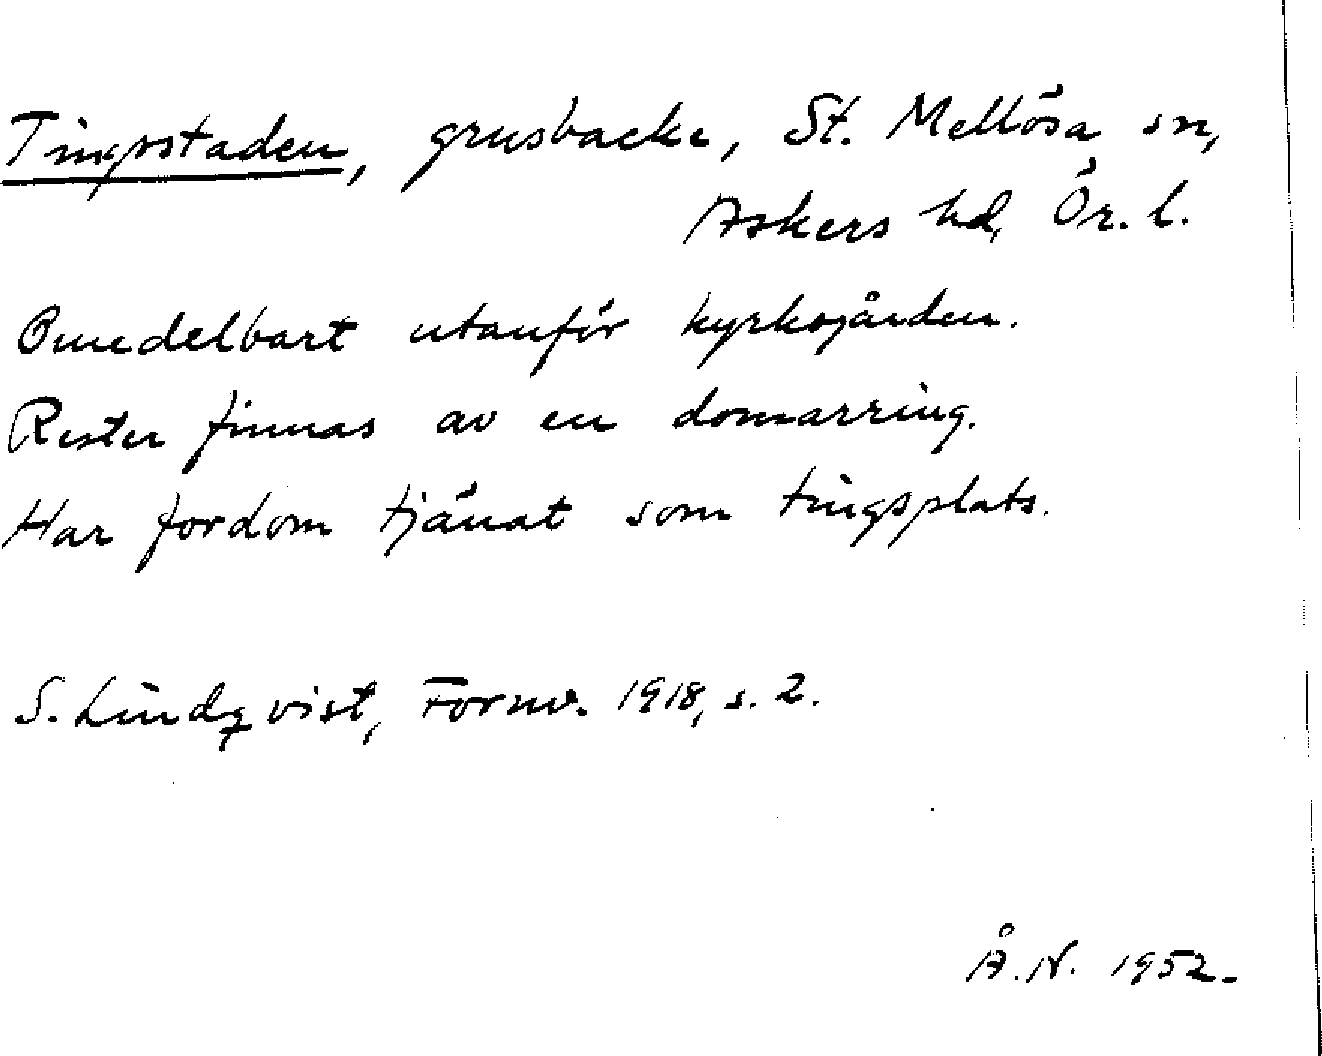 Tingsstaden, grusbacke, St. Mellösa sn,
Askers hd, Ör. l.
Omedelbart utanför kyrkogården.
Rester finnas av en domarring.
Har fordom tjänat som tingsplats.
S. Lindqvist, Fornv. 1918, s. 2.
Å. N. 1952.